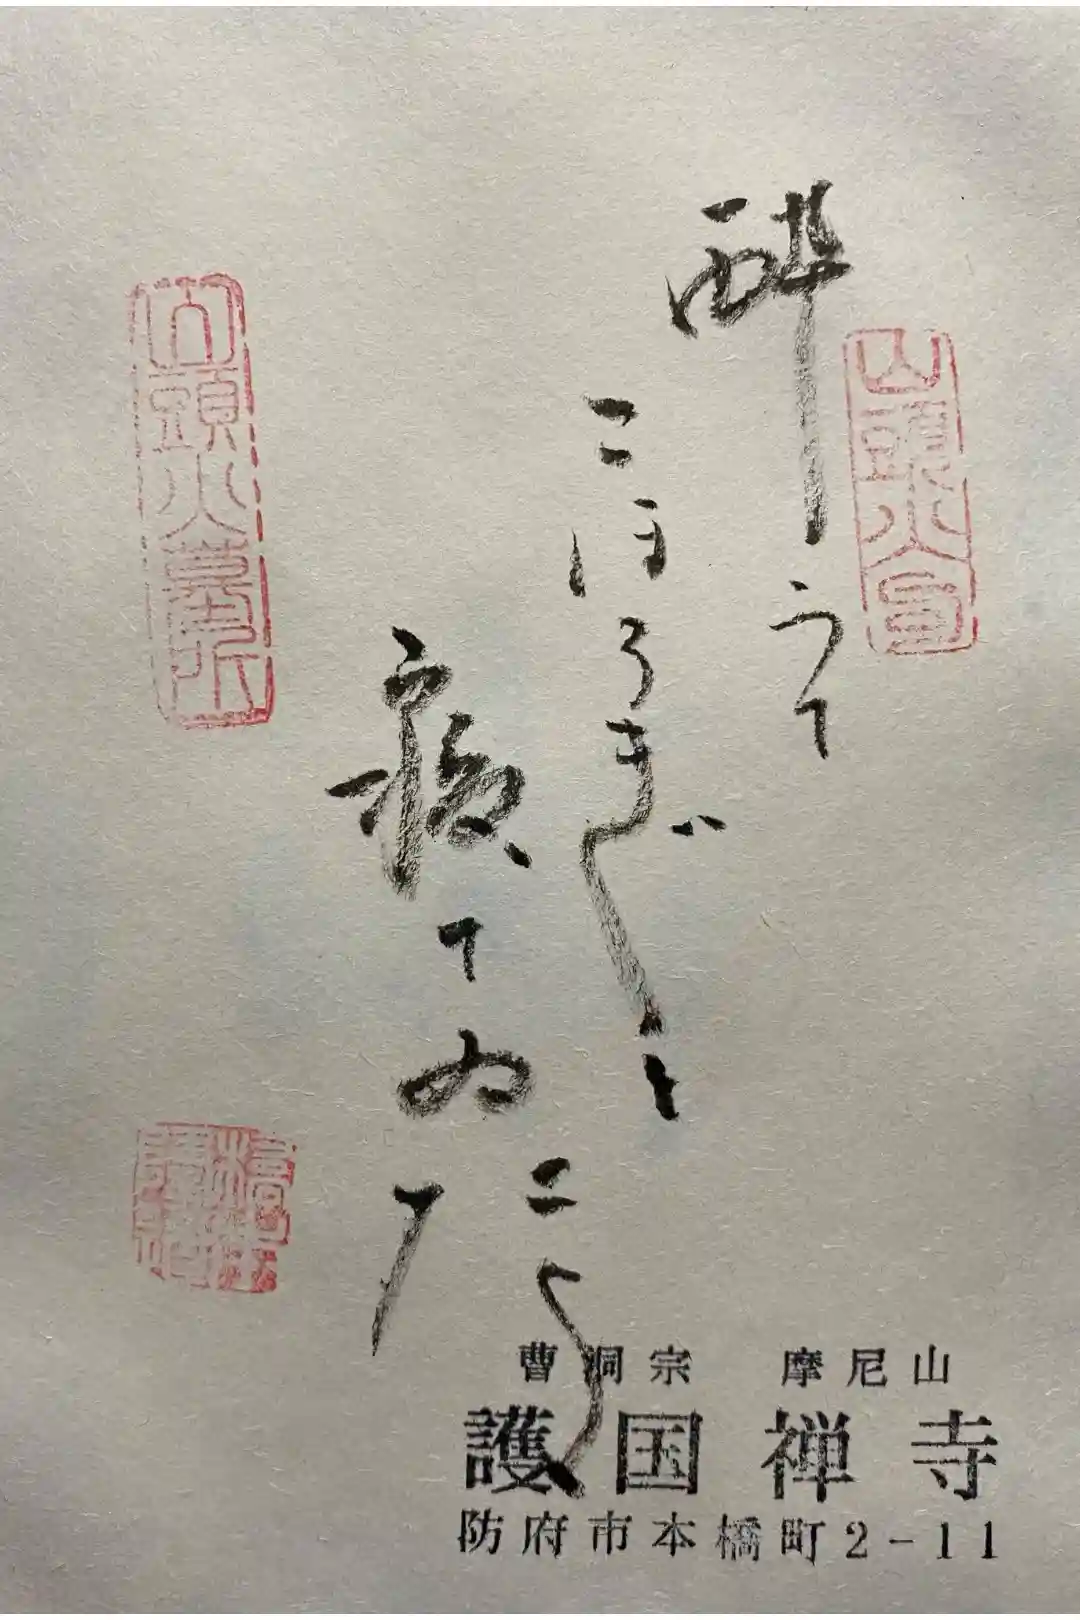 山頭火
酔うて
こほろぎと
寝てゐたよ
山頭火墓所
曹洞宗　摩尼山
護国禅寺
防府市本橋町2-11